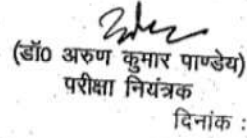 (डॉ0 अरुण कुमार पाण्डेय)
परीक्षा नियंत्रक
दिनांक :